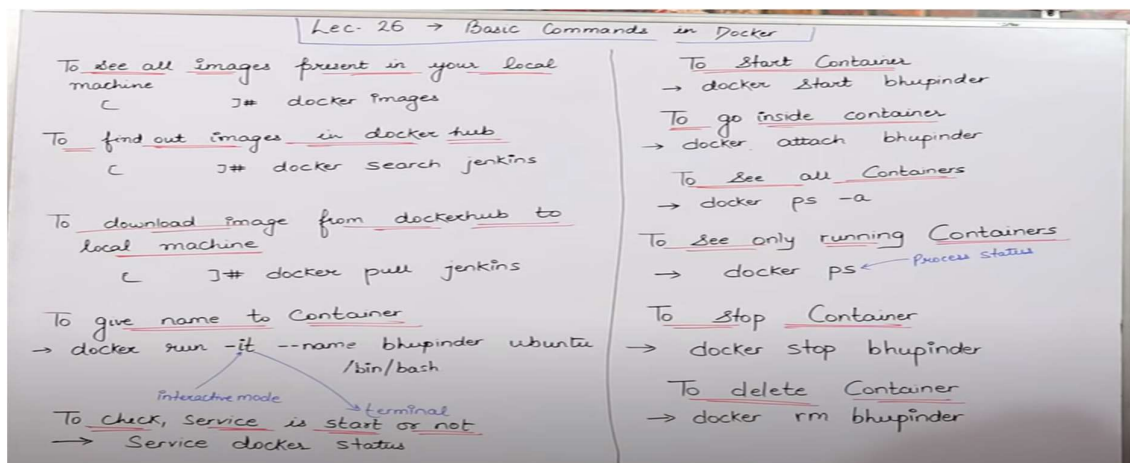 Lec- 26 → Basic Commands in Docker
To see all images present in your local
machine
[ ]# docker images
To find out images in docker hub
[ ]# docker search jenkins
To download image from dockerhub to
local machine
[ ]# docker pull jenkins
To give name to Container
→ docker run -it --name bhupinder ubuntu
/bin/bash
interactive mode
terminal
To check, service is start or not
→ Service docker status
To Start Container
→ docker start bhupinder
To go inside container
→ docker attach bhupinder
To see all Containers
→ docker ps -a
To see only running Containers
→ docker ps
Process status
To stop Container
→ docker stop bhupinder
To delete Container
→ docker rm bhupinder